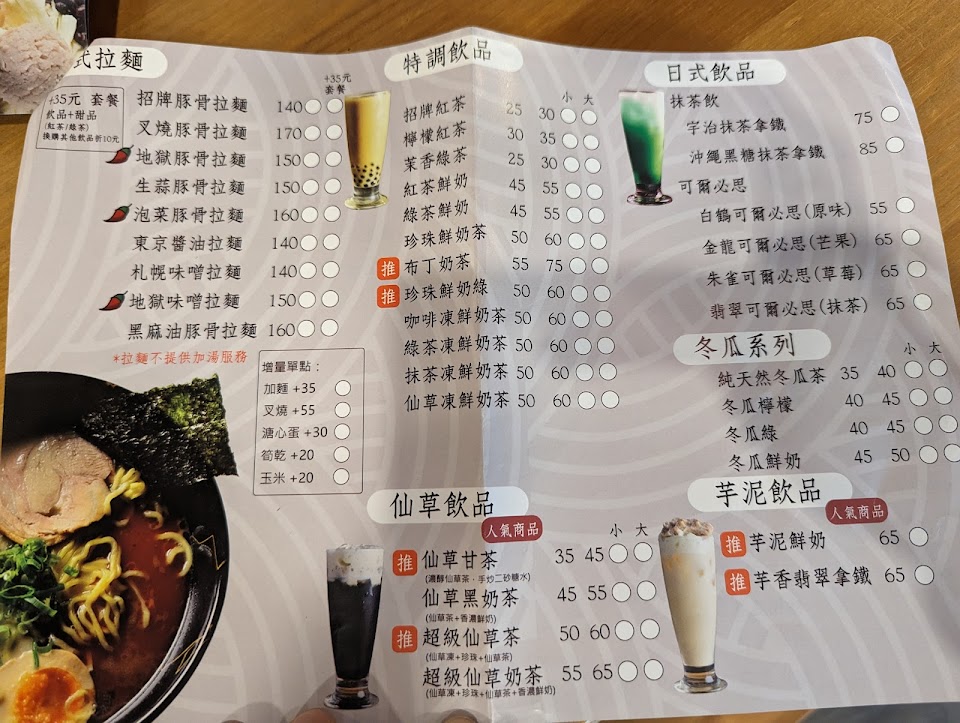 式拉麵
+35元 套餐
飲品+甜品
(紅茶/綠茶)
換購其他飲品折10元
+35元
套餐
招牌豚骨拉麵 140
叉燒豚骨拉麵 170
地獄豚骨拉麵 150
生蒜豚骨拉麵 150
泡菜豚骨拉麵 160
東京醬油拉麵 140
札幌味噌拉麵 140
地獄味噌拉麵 150
黑麻油豚骨拉麵 160
*拉麵不提供加湯服務
增量單點：
加麵 +35
叉燒 +55
溏心蛋 +30
筍乾 +20
玉米 +20
特調飲品
小 大
招牌紅茶 25 30
檸檬紅茶 30 35
茉香綠茶 25 30
紅茶鮮奶 45 55
綠茶鮮奶 45 55
珍珠鮮奶茶 50 60
推 布丁奶茶 55 75
推 珍珠鮮奶綠 50 60
咖啡凍鮮奶茶 50 60
綠茶凍鮮奶茶 50 60
抹茶凍鮮奶茶 50 60
仙草凍鮮奶茶 50 60
仙草飲品
人氣商品
小 大
推 仙草甘茶 35 45
(濃醇仙草茶．手炒二砂糖水)
仙草黑奶茶 45 55
(仙草茶+香濃鮮奶)
推 超級仙草茶 50 60
(仙草凍+珍珠+仙草茶)
超級仙草奶茶 55 65
(仙草凍+珍珠+仙草茶+香濃鮮奶)
日式飲品
抹茶飲
宇治抹茶拿鐵 75
沖繩黑糖抹茶拿鐵 85
可爾必思
白鶴可爾必思(原味) 55
金龍可爾必思(芒果) 65
朱雀可爾必思(草莓) 65
翡翠可爾必思(抹茶) 65
冬瓜系列
小 大
純天然冬瓜茶 35 40
冬瓜檸檬 40 45
冬瓜綠 40 45
冬瓜鮮奶 45 50
芋泥飲品
人氣商品
推 芋泥鮮奶 65
推 芋香翡翠拿鐵 65